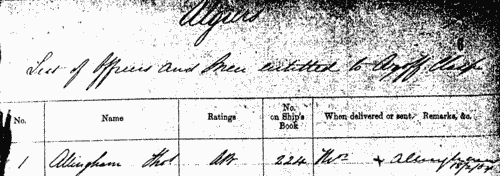 Algiers
List of Officers and Men entitled to
No. Name Ratings No. on Ship's Book When delivered or sent. Remarks, &c.
1 Allingham Thos AB 224